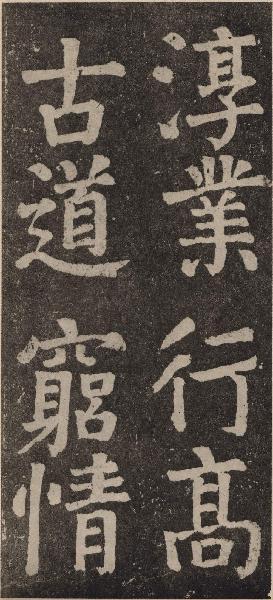 淳業行髙
古道窮情